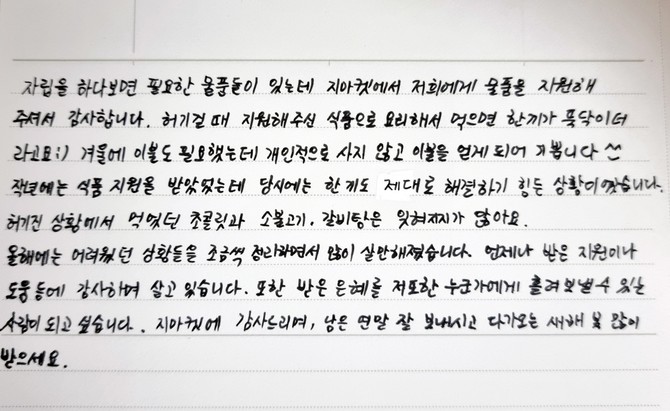 자립을 하다보면 필요한 물품들이 있는데 지마켓에서 저희에게 물품을 지원해
주셔서 감사합니다. 허기질 때 지원해주신 식품으로 요리해서 먹으면 한끼가 뚝딱이더
라고요;) 겨울에 이불도 필요했는데 개인적으로 사지 않고 이불을 얻게 되어 기쁩니다 ^^
작년에는 식품 지원을 받았었는데 당시에는 한끼도 제대로 해결하기 힘든 상황이었습니다.
허기진 상황에서 먹었던 초콜릿과 소불고기, 갈비탕은 잊혀지지가 않아요.
올해에는 어려웠던 상황들을 조금씩 정리하면서 많이 살만해졌습니다. 언제나 받은 지원이나
도움들에 감사하며 살고 있습니다. 또한 받은 은혜를 저또한 누군가에게 흘려보낼 수 있는
사람이 되고 싶습니다. 지마켓에 감사드리며, 남은 연말 잘 보내시고 다가오는 새해 복 많이
받으세요.